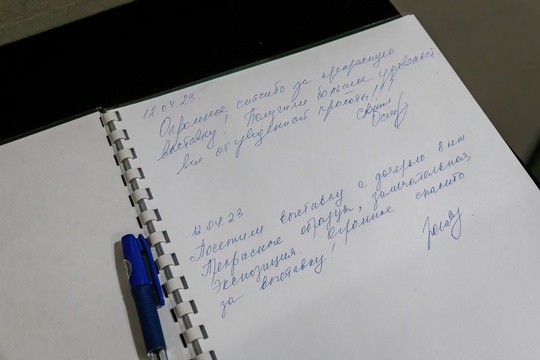 12.04.23.
Огромное спасибо за прекрасную
выставку! Получили большое удовольст-
вие от увиденной красоты!!!
семья
12.04.23.
Посетили выставку с дочерью 8 лет
Прекрасные образы, замечательная
Экспозиция. Огромное спасибо
за выставку!